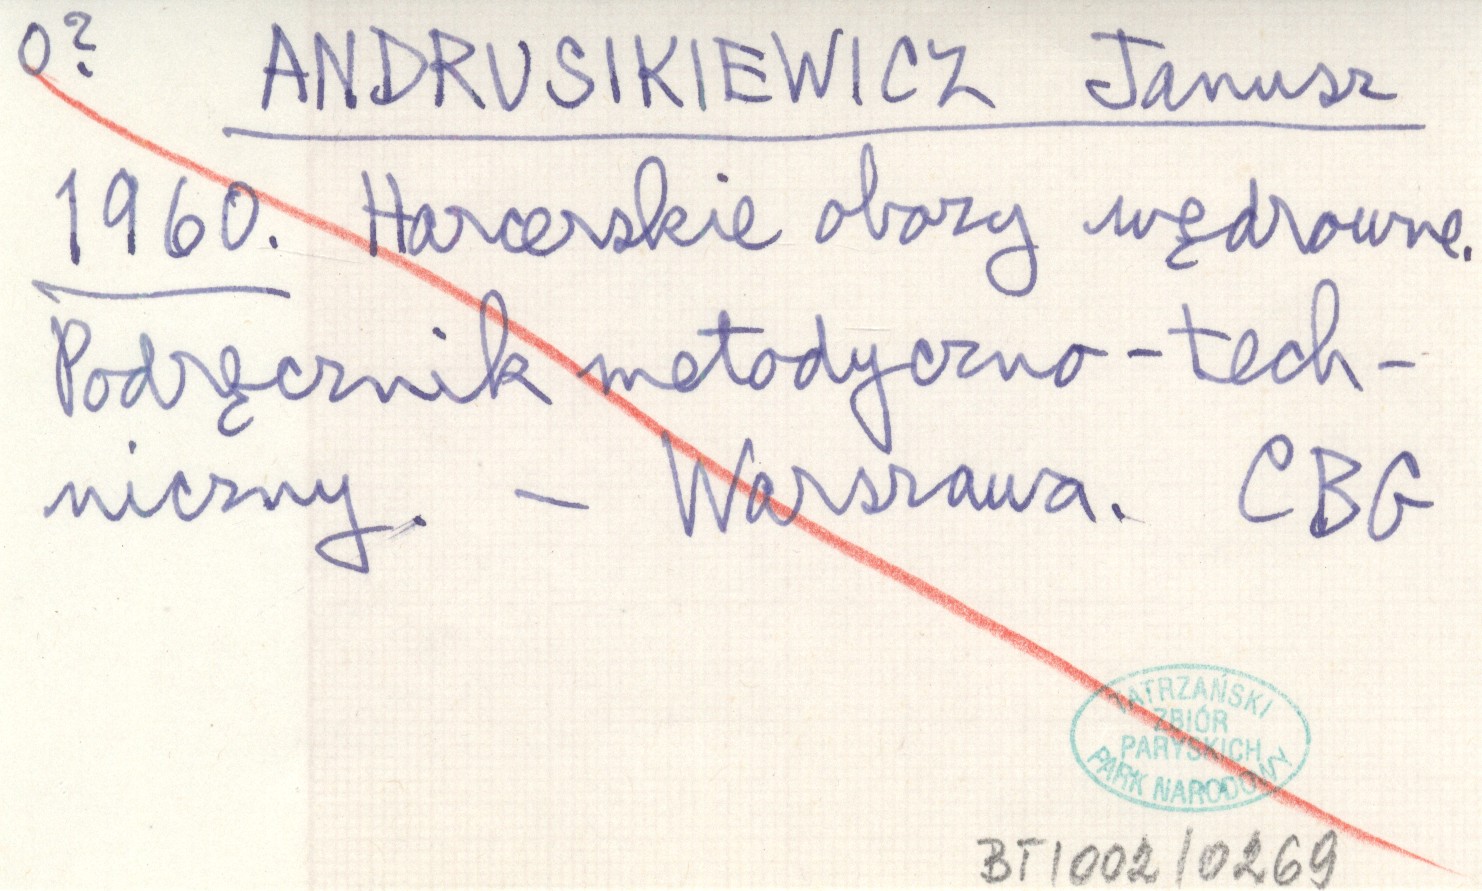 0?
ANDRUSIKIEWICZ Janusz
1960. Harcerskie obozy wędrowne.
Podręcznik metodyczno-tech-
niczny. - Warszawa. CBG
TATRZAŃSKI
ZBIÓR
PARYSKICH
PARK NARODOWY
BT1002/0269